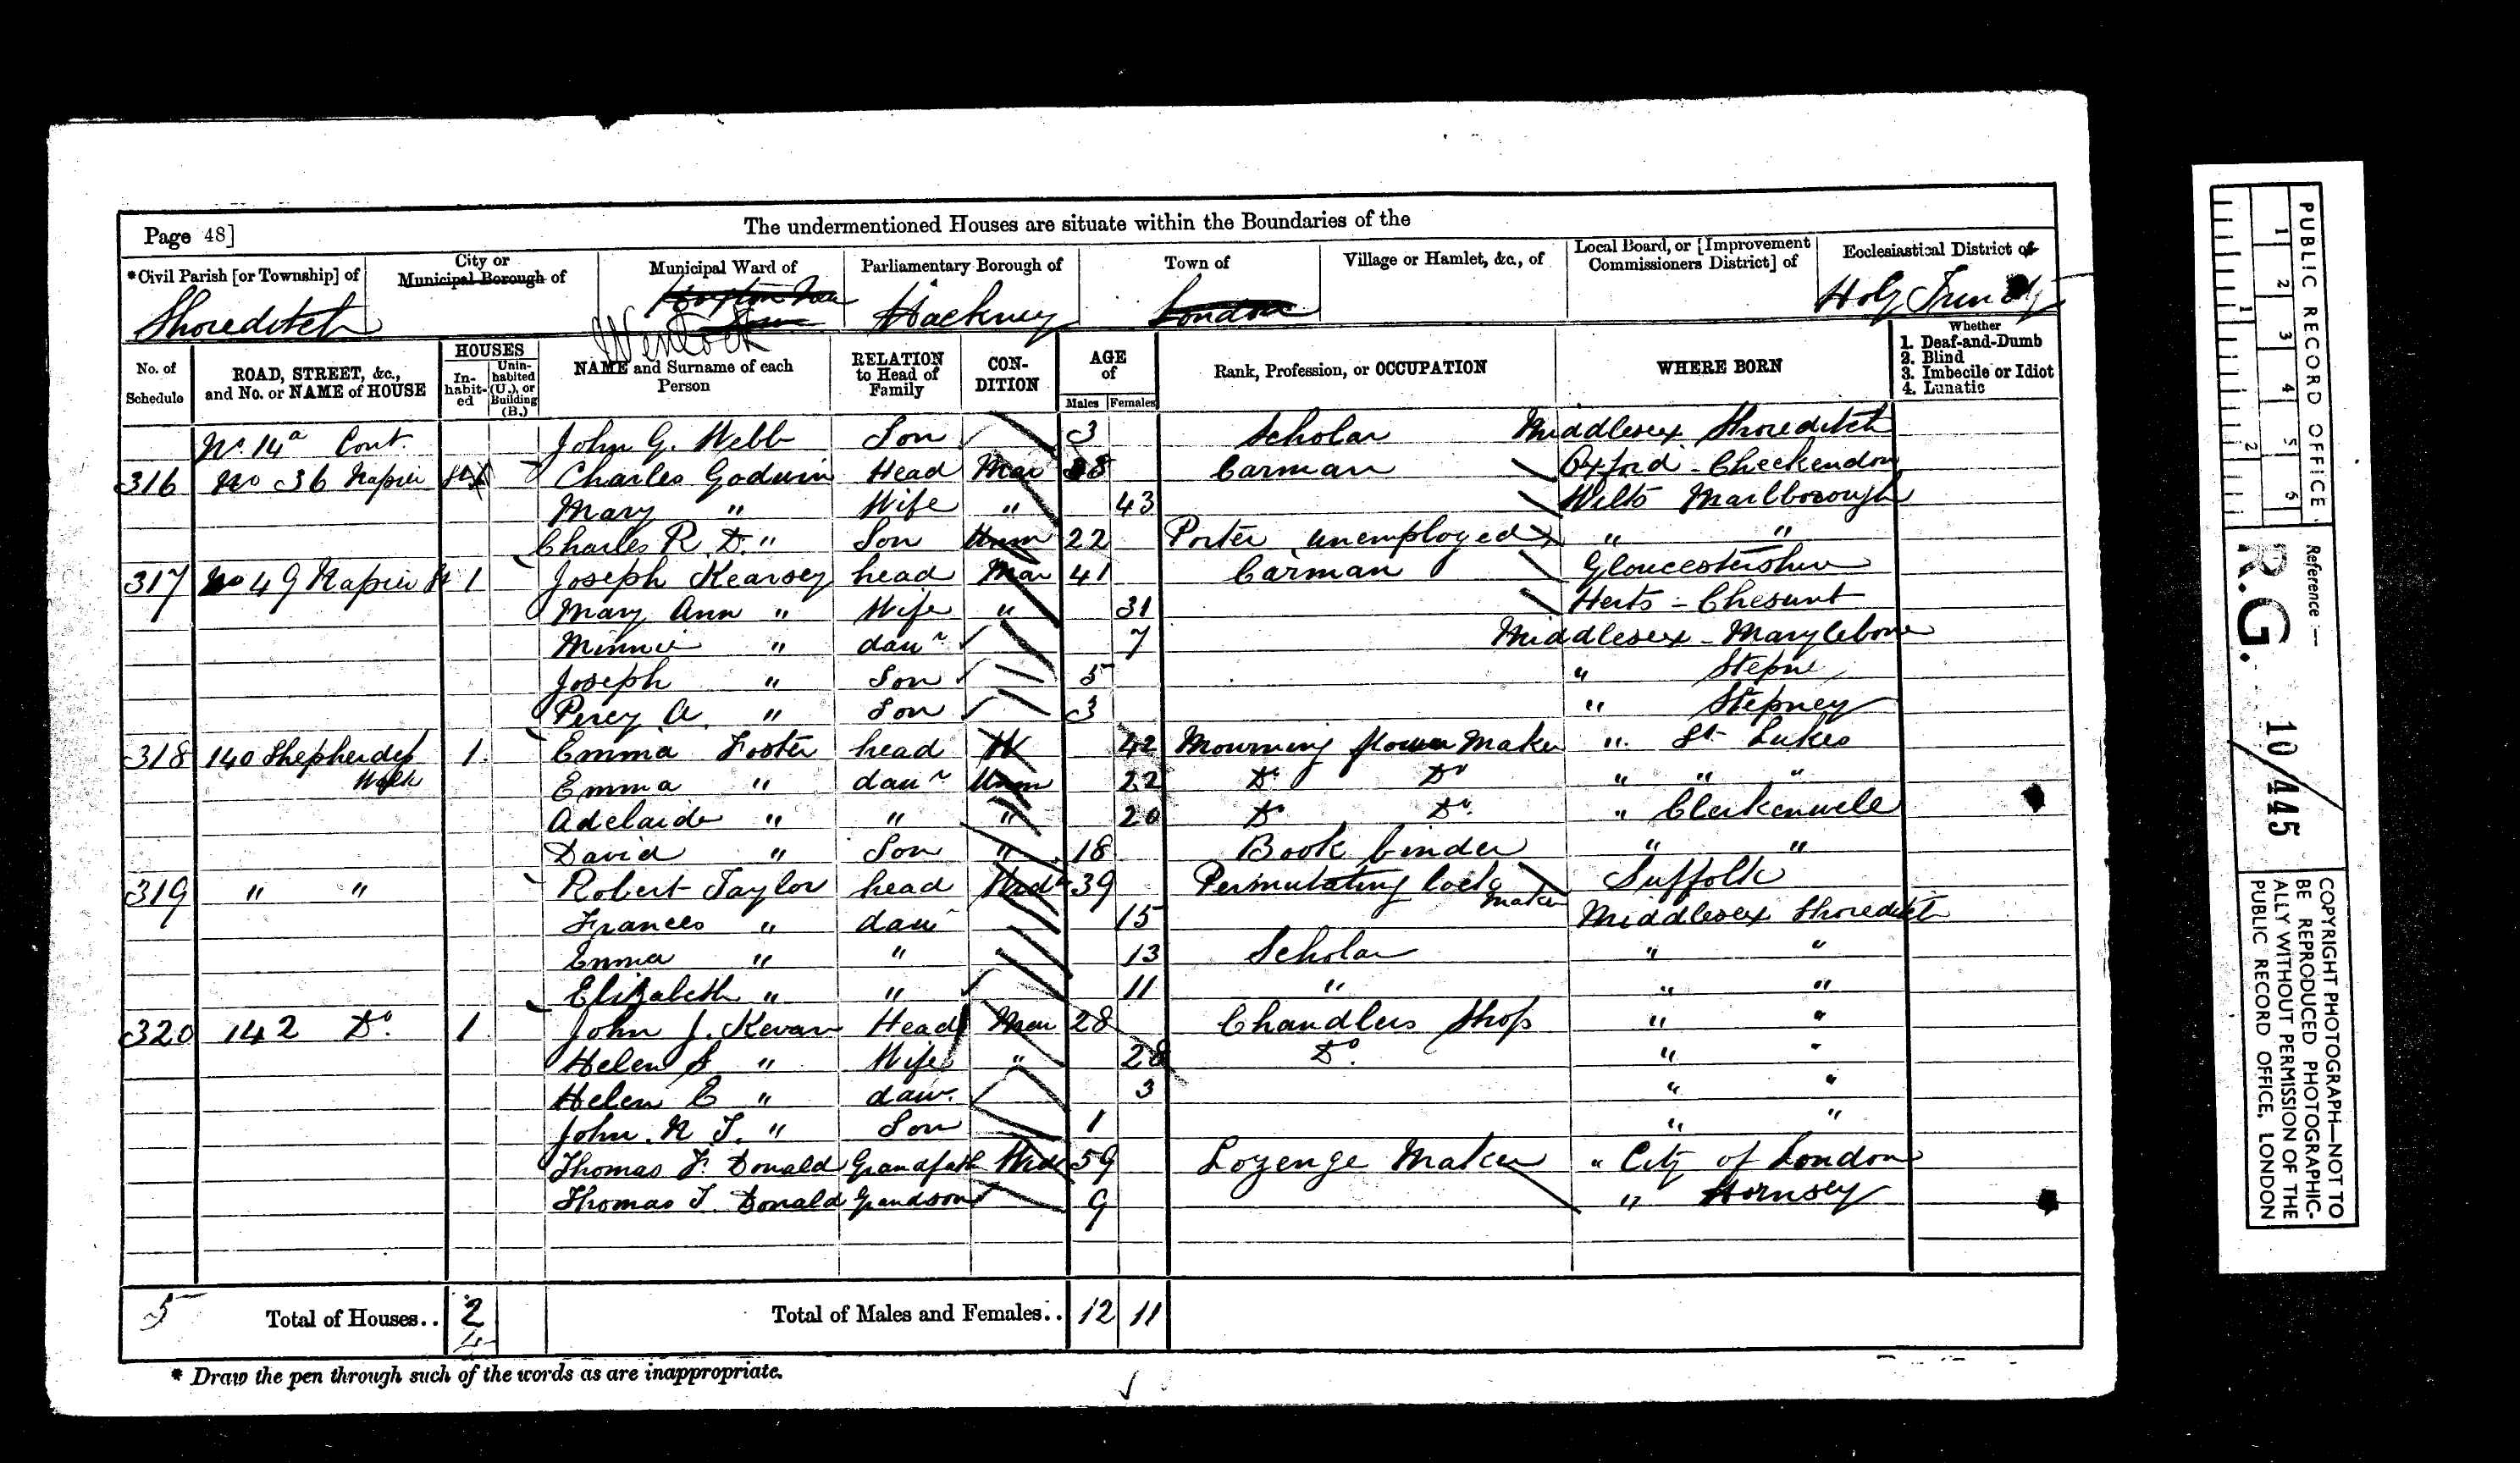 Page 48]
The undermentioned Houses are situate within the Boundaries of the
*Civil Parish [or Township] of
City or Municipal Borough of
Municipal Ward of
Parliamentary Borough of
Town of
Village or Hamlet, &c., of
Local Board, or [Improvement Commissioners District] of
Ecclesiastical District of
Shoreditch
Wenlock
Hackney
London
Holy Trinity
No. of Schedule
ROAD, STREET, &c., and No. or NAME of HOUSE
HOUSES
In-habit-ed
Unin-habited (U.), or Building (B.)
NAME and Surname of each Person
RELATION to Head of Family
CON-DITION
AGE of
Males
Females
Rank, Profession, or OCCUPATION
WHERE BORN
Whether
1. Deaf-and-Dumb
2. Blind
3. Imbecile or Idiot
4. Lunatic
No. 14a Cont. John G. Webb Son 3 Scholar Middlesex Shoreditch
316 No 36 Napier St Charles Godwin Head Mar 38 Carman Oxford - Checkendon
Mary " Wife " 43 Wilts Marlborough
Charles R. D. " Son Unm 22 Porter unemployed " "
317 No 49 Napier St 1 Joseph Kearsey head Mar 41 Carman Gloucestershire
Mary Ann " Wife " 31 Herts - Chesunt
Minnie " daur 7 Middlesex - Marylebone
Joseph " Son 5 " Stepne
Percy A. " Son 3 " Stepney
318 140 Shepherdess Walk 1. Emma Foster head W 42 Mourning flower Maker " St Lukes
Emma " daur Unm 22 Do Do " " "
Adelaide " " " 20 Do Do. " Clerkenwell
David " Son " 18 Book binder " "
319 " " Robert Taylor head Widr 39 Permutating lock maker Suffolk
Frances " daur 15 Middlesex Shoreditch
Emma " " 13 Scholar " "
Elizabeth " " 11 " " "
320 142 Do. 1. John J. Kevan Head Mar 28 Chandlers Shop " "
Helen S " Wife " 28 Do. " "
Helen E " daur. 3 " "
John. N. T. " Son 1 " "
Thomas F. Donald Grandfath Widr 59 Lozenge Maker " City of London
Thomas T. Donald Grandson 9 " Hornsey
5 Total of Houses.. 2
4
Total of Males and Females.. 12 11
* Draw the pen through such of the words as are inappropriate.
PUBLIC RECORD OFFICE
1 2 3 4 5 6
1 2
Reference:—
R.G. 10/445
COPYRIGHT PHOTOGRAPH—NOT TO BE REPRODUCED PHOTOGRAPHIC-ALLY WITHOUT PERMISSION OF THE PUBLIC RECORD OFFICE, LONDON